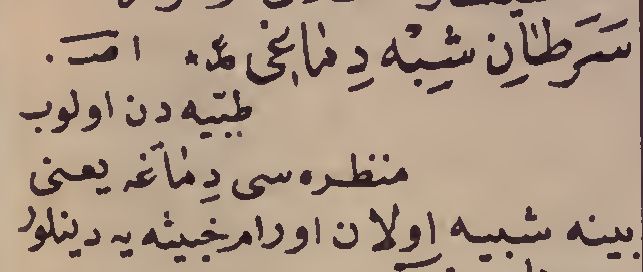 سَرَطَانِ شِبْهِ دِمَاغِى اص.
طبيه دن اولوب
منظره سى دِمَاغه يعنى
بينه شبيه اولان اورام خبيثه يه دينلور